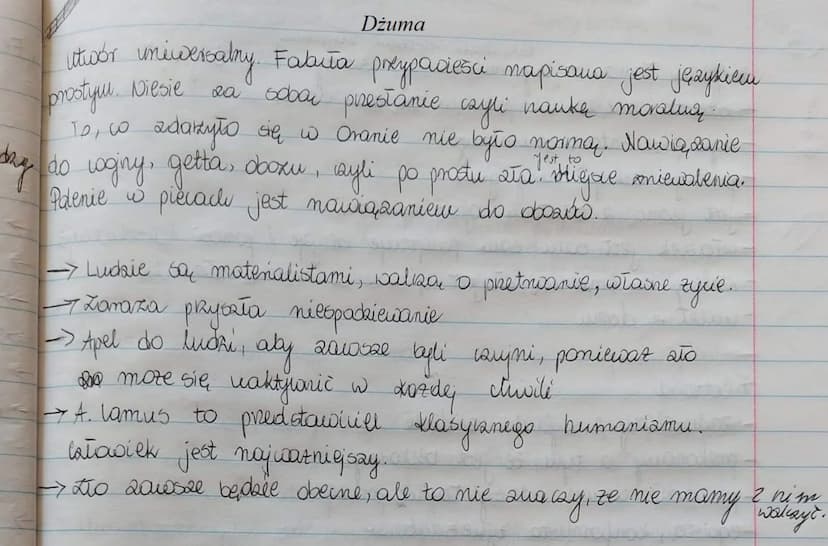 Dżuma
Utwór uniwersalny. Fabuła przypowieści napisana jest językiem
prostym. Niesie za sobą przesłanie czyli naukę moralną.
To, co zdarzyło się w Oranie nie było normą. Nawiązanie
do wojny, getta, obozu, czyli po prostu zła. jest to Miejsce zniewolenia.
Palenie w piecach jest nawiązaniem do obozów.
→ Ludzie są materialistami, walczą o przetrwanie, własne życie.
→ Zaraza przyszła niespodziewanie
→ Apel do ludzi, aby zawsze byli czujni, ponieważ zło
może się uaktywnić w każdej chwili
→ A. Camus to przedstawiciel klasycznego humanizmu.
Człowiek jest najważniejszy.
→ Zło zawsze będzie obecne, ale to nie znaczy, że nie mamy z nim
walczyć.